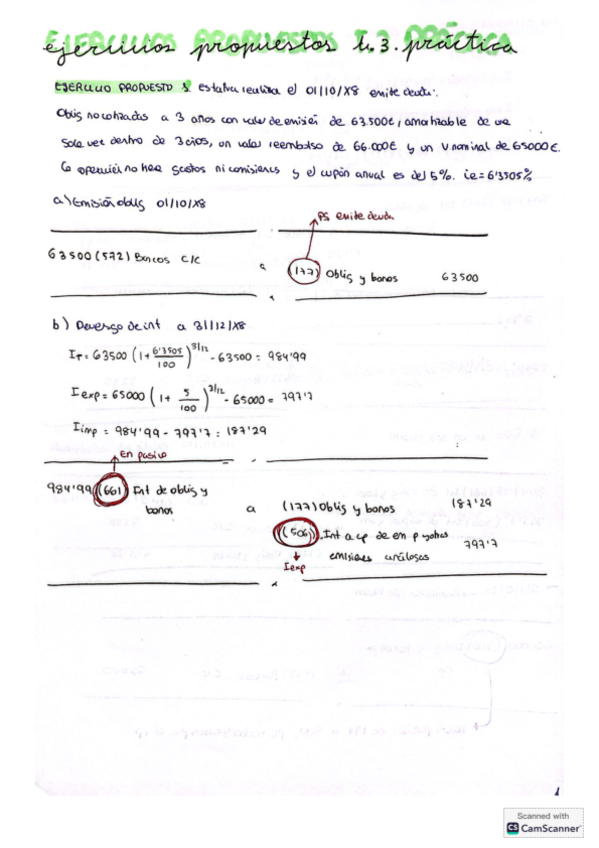 ejercicios propuestos t.3. práctica
EJERCICIO PROPUESTO 8. estatva realiza el 01/10/X8 emite deuda:
Oblig no cotizadas a 3 años con valor de emisión de 63.500€, amortizable de una
sola vez dentro de 3 años, un valor reembolso de 66.000€ y un V nominal de 65000€.
La operación no tiene gastos ni comisiones y el cupón anual es del 5%. ie=6'3505%
a) Emisión oblig 01/10/X8
PS emite deuda
63500 (572) Bancos c/c
a (177) Oblig y bonos 63500
b) Devengo de int a 31/12/X8
IT = 63500 (1+ 6'3505/100)^3/12 - 63500 = 984'99
Iexp = 65000 (1 + 5/100)^3/12 - 65000 = 797'7
Iimp = 984'99 - 797'7 = 187'29
en pasivo
984'99 (661) Int de oblig y
bonos
a (177) Oblig y bonos 187'29
(506). Int a cp de em p y otras
emisiones análogas 797'7
Iexp
1
Scanned with
CS CamScanner